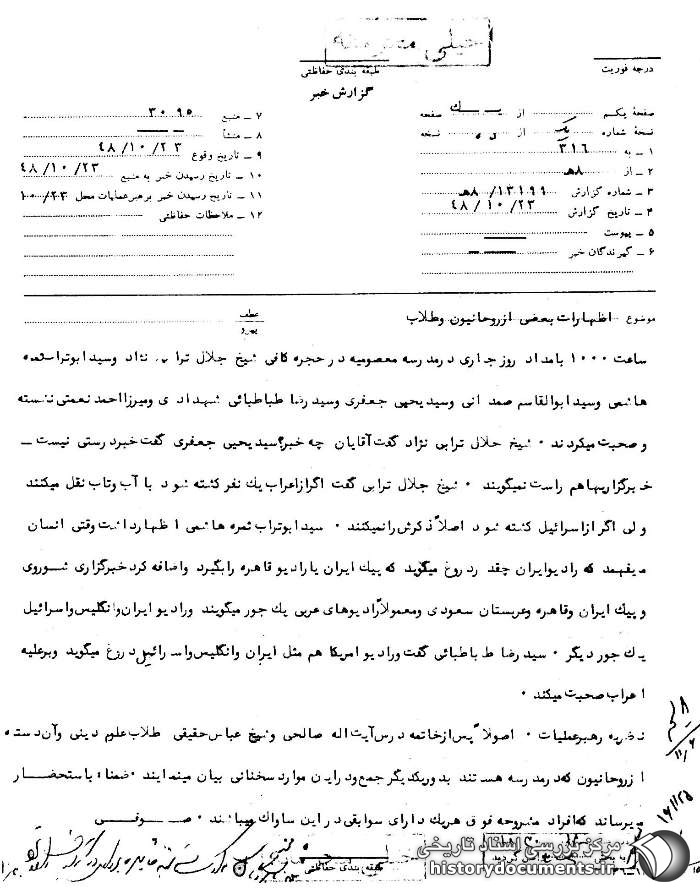 خیلی محرمانه
طبقه بندی حفاظتی
درجه فوریت
گزارش خبر
صفحهٔ یکم از یک صفحه
نسخهٔ شماره یک از نسخه
۱ ـ به ۳۱۶
۲ ـ از ۸هـ
۳ ـ شماره گزارش ۸هـ/۱۳۱۹۹
۴ ـ تاریخ گزارش ۴۸/۱۰/۲۳
۵ ـ پیوست
۶ ـ گیرندگان خبر
۷ ـ منبع ۳۰۹۵
۸ ـ منشأ
۹ ـ تاریخ وقوع ۴۸/۱۰/۲۳
۱۰ ـ تاریخ رسیدن خبر به منبع ۴۸/۱۰/۲۳
۱۱ ـ تاریخ رسیدن خبر برهبرعملیات محل
۱۲ ـ ملاحظات حفاظتی
موضوع اظهارات بعضی ازروحانیون وطلاب
عطف
پیرو
ساعت ۱۰۰۰ بامداد روزجاری درمدرسه معصومیه درحجره کافی شیخ جلال ترابی نژاد وسیدابوتراب ثمره
هاشمی وسیدابوالقاسم صمدانی وسیدیحیی جعفری وسیدرضا طباطبائی شهدادی ومیرزااحمد نعمتی نشسته
وصحبت میکردند ۰ شیخ جلال ترابی نژاد گفت آقایان چه خبر؟سیدیحیی جعفری گفت خبردرستی نیست ـ
خبرگزاریهاهم راست نمیگویند ۰ شیخ جلال ترابی گفت اگرازاعراب یك نفرکشته شود با آب وتاب نقل میکنند
ولی اگرازاسرائیل کشته شود اصلاً ذکرش رانمیکنند ۰ سیدابوتراب ثمره هاشمی اظهارداشت وقتی انسان
میفهمد که رادیوایران چقدردروغ میگوید که پیك ایران یارادیو قاهره رابگیرد واضافه کردخبرگزاری شوروی
وپیك ایران وقاهره وعربستان سعودی ومعمولاًرادیوهای عربی یك جورمیگویند ورادیو ایران وانگلیس واسرائیل
یك جوردیگر ۰ سیدرضا طباطبائی گفت ورادیو امریکا هم مثل ایران وانگلیس واسرائیل دروغ میگوید وبرعلیه
اعراب صحبت میکند ۰
نظریه رهبرعملیات ۰ اصولاً پس ازخاتمه درس آیت اله صالحی وشیخ عباس حقیقی طلاب علوم دینی وآن دسته
ازروحانیون که درمدرسه هستند بدوریکدیگرجمع ودراین مواردسخنانی بیان مینمایند ۰ ضمناً باستحضار
میرساند که افراد مشروحه فوق هریك دارای سوابقی دراین ساواك میباشند ۰ صوفی
طبقه بندی حفاظتی
مرکز بررسی اسناد تاریخی
historydocuments.ir